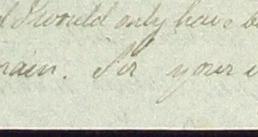 I would only have b
main. Sir your